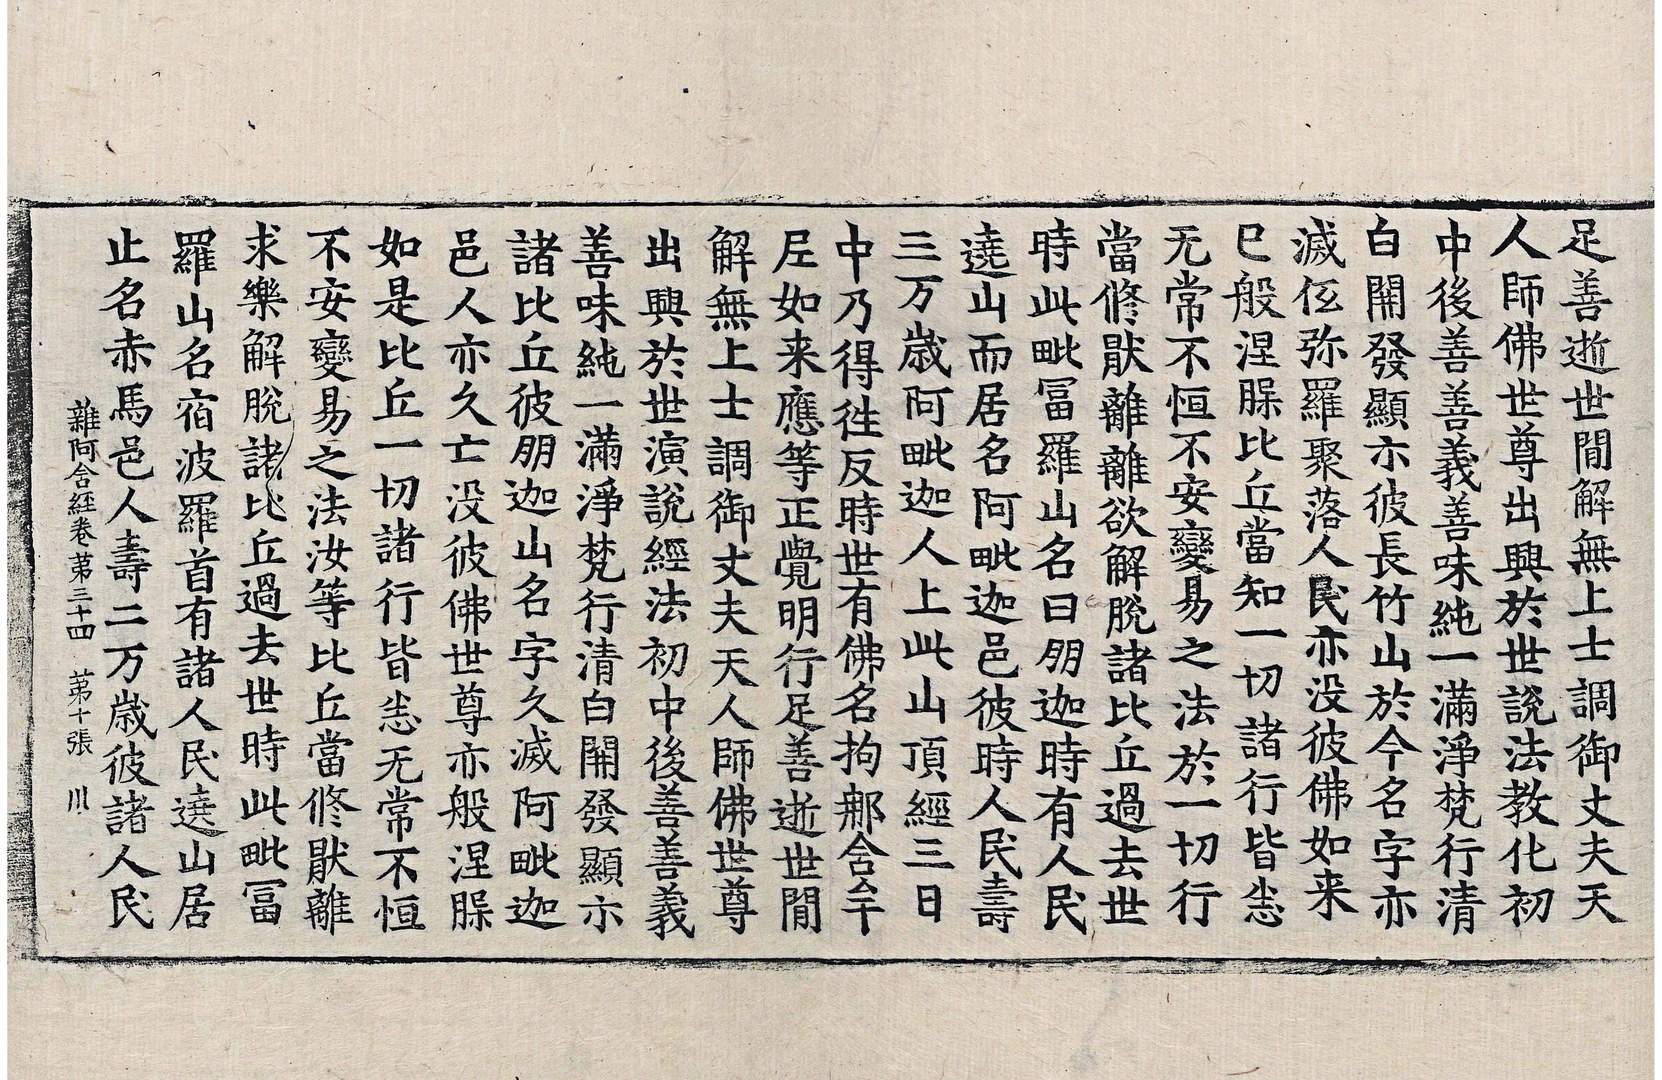 足善逝世間解無上士調御丈夫天
人師佛世尊出興於世說法教化初
中後善善義善味純一滿淨梵行清
白開發顯示彼長竹山於今名字亦
滅伭弥羅聚落人民亦没彼佛如来
已般涅槃比丘當知一切諸行皆悉
无常不恒不安變易之法於一切行
當修猒離離欲解脫諸比丘過去世
時此毗冨羅山名曰朋迦時有人民
遶山而居名阿毗迦邑彼時人民壽
三万歲阿毗迦人上此山頂經三日
中乃得往反時世有佛名拘那含牟
尼如来應等正覺明行足善逝世間
解無上士調御丈夫天人師佛世尊
出興於世演說經法初中後善善義
善味純一滿淨梵行清白開發顯示
諸比丘彼朋迦山名字久滅阿毗迦
邑人亦久亡没彼佛世尊亦般涅槃
如是比丘一切諸行皆悉无常不恒
不安變易之法汝等比丘當修猒離
求樂解脫諸比丘過去世時此毗冨
羅山名宿波羅首有諸人民遶山居
止名赤馬邑人壽二万歲彼諸人民
雜阿含經卷苐三十四 苐十張 川